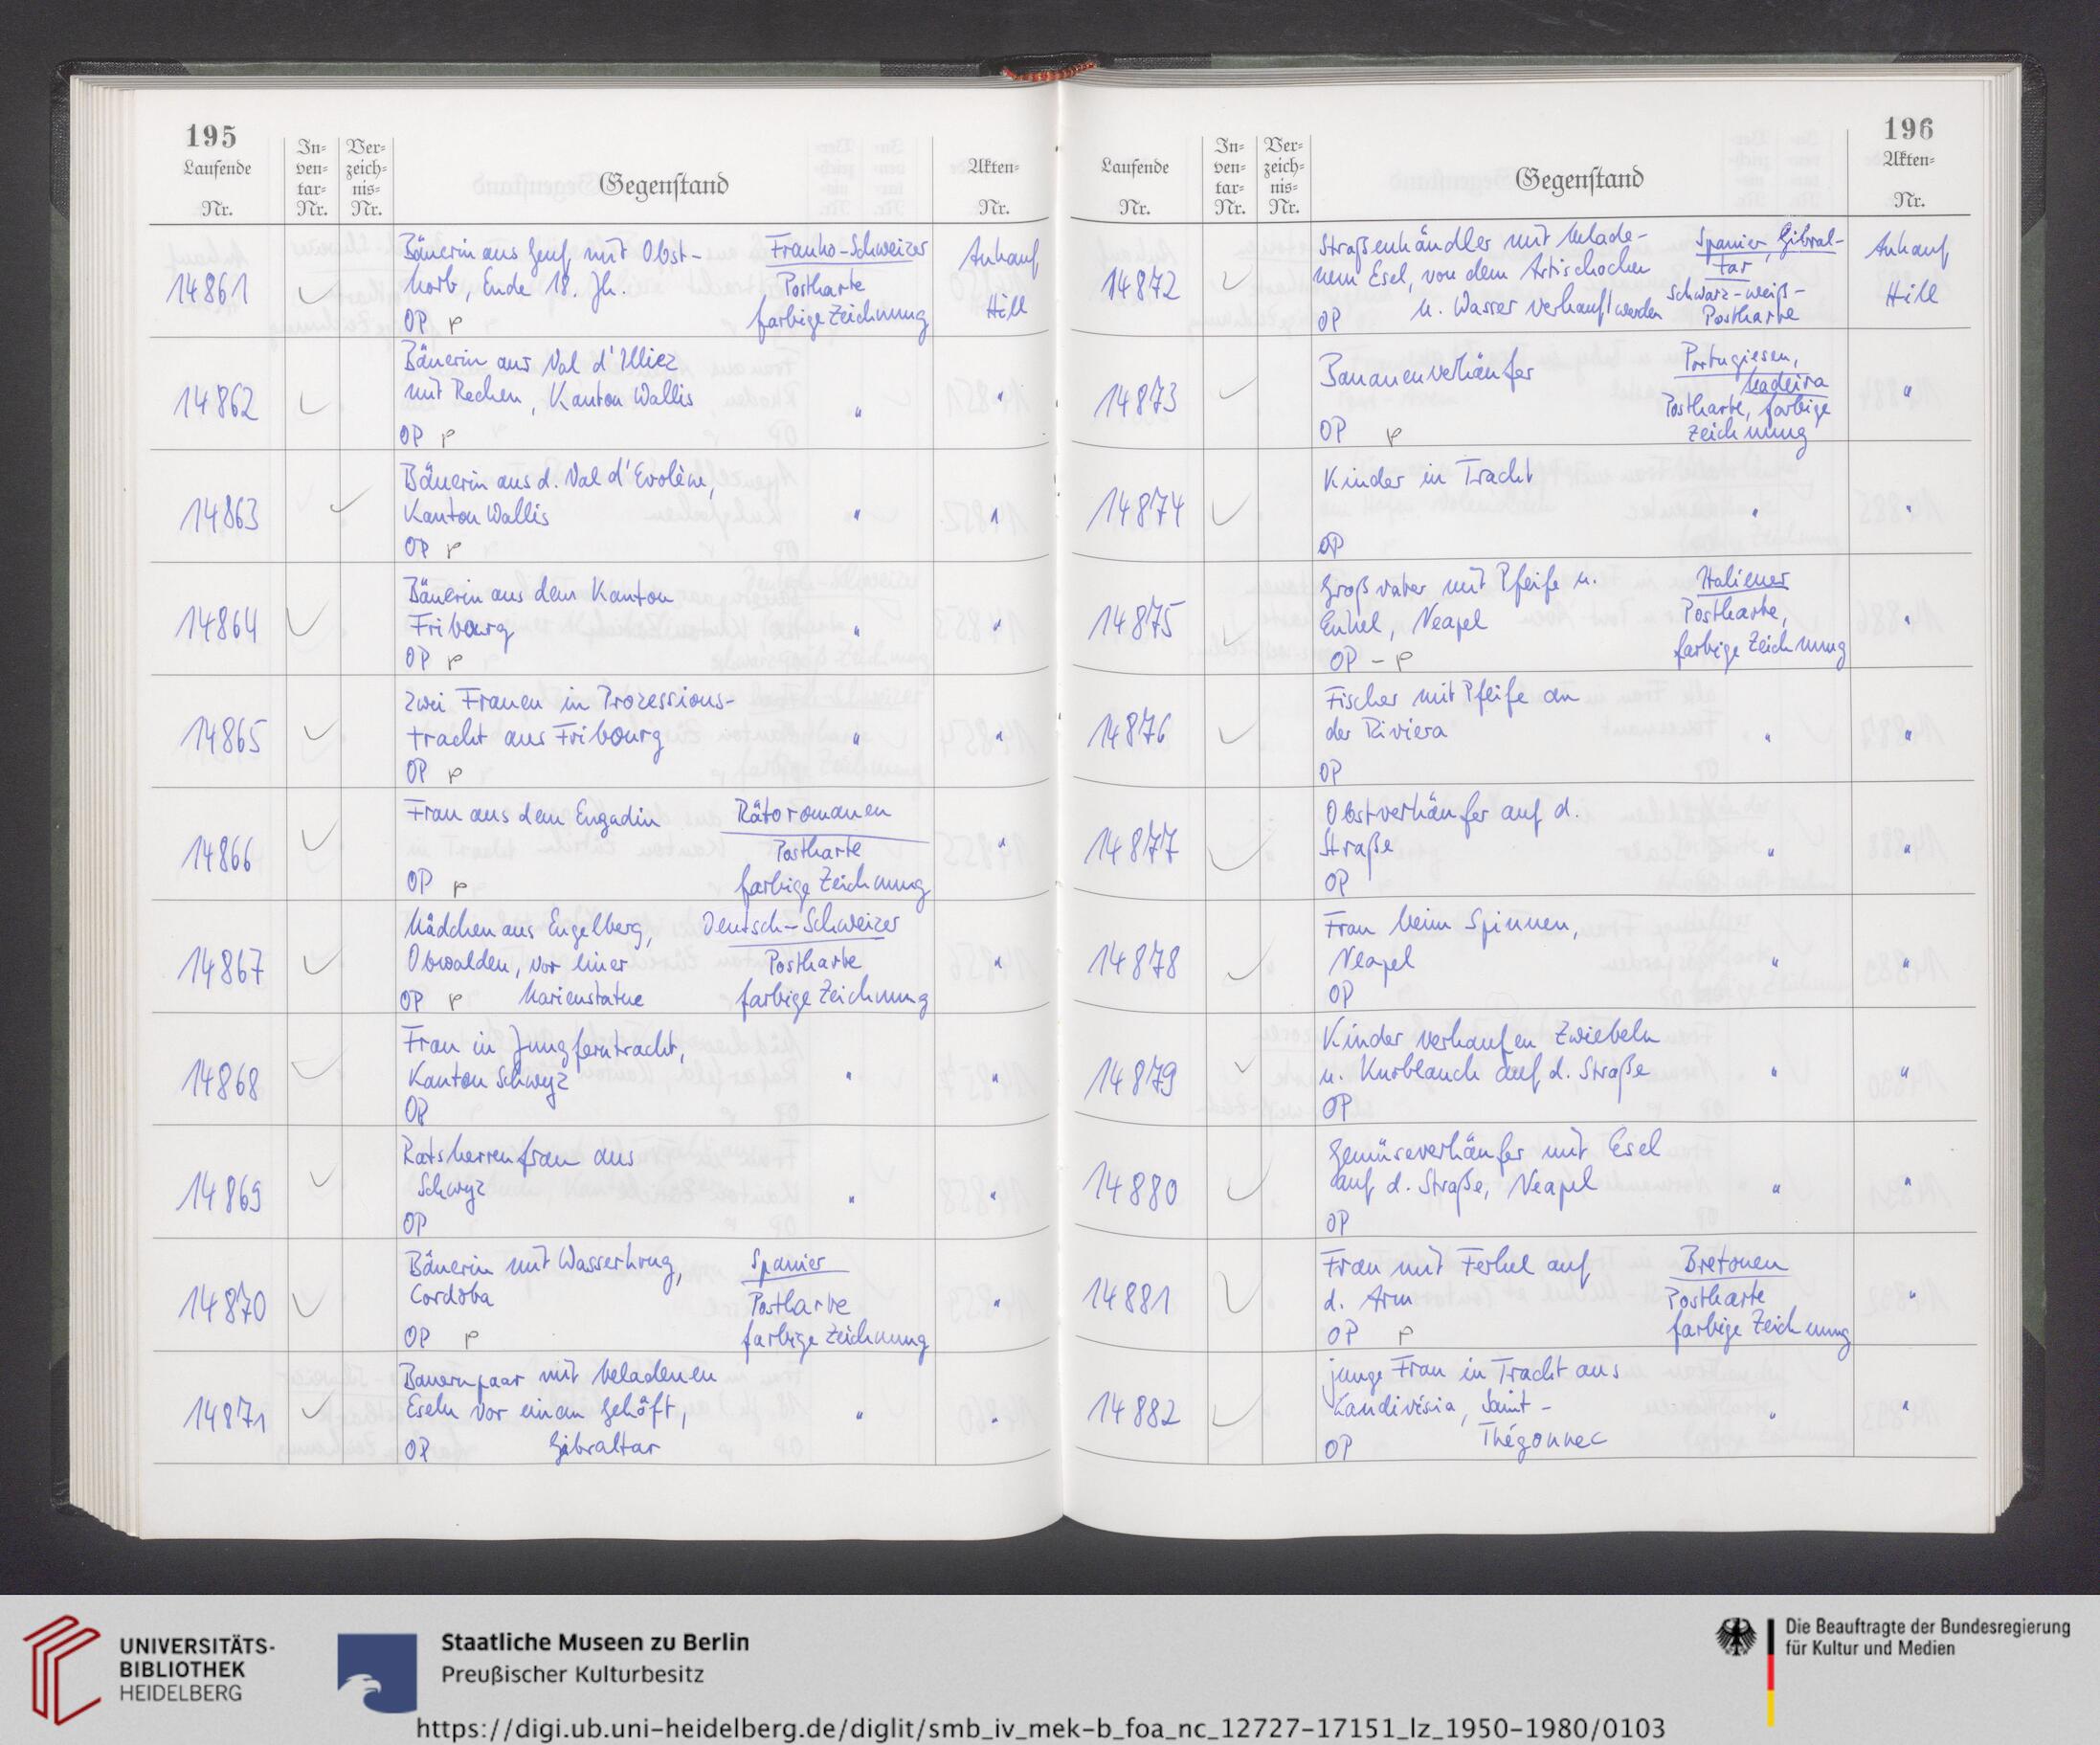 195
Laufende Nr.
In-ven-tar-Nr.
Ver-zeich-nis-Nr.
Gegenstand
Akten-Nr.
14861
Bäuerin aus Genf mit Obst-
korb, Ende 18. Jh.
OP P
Franko-Schweizer
Postkarte
farbige Zeichnung
Ankauf
Hill
14862
Bäuerin aus Val d'Illiez
mit Rechen, Kanton Wallis
OP P
"
"
14863
Bäuerin aus d. Val d'Evolène,
Kanton Wallis
OP P
"
"
14864
Bäuerin aus dem Kanton
Fribourg
OP P
"
"
14865
Zwei Frauen in Prozessions-
tracht aus Fribourg
OP P
"
"
14866
Frau aus dem Engadin
OP P
Rätoromanen
Postkarte
farbige Zeichnung
"
14867
Mädchen aus Engelberg,
Obwalden, vor einer
OP P Marienstatue
Deutsch-Schweizer
Postkarte
farbige Zeichnung
"
14868
Frau in Jungferntracht,
Kanton Schwyz
OP
"
"
14869
Ratsherrenfrau aus
Schwyz
OP
"
"
14870
Bäuerin mit Wasserkrug,
Cordoba
OP P
Spanier
Postkarte
farbige Zeichnung
"
14871
Bauernpaar mit beladenen
Eseln vor einem Gehöft,
OP Gibraltar
"
"
196
Laufende Nr.
In-ven-tar-Nr.
Ver-zeich-nis-Nr.
Gegenstand
Akten-Nr.
14872
Straßenhändler mit belade-
nem Esel, von dem Artischocken
OP u. Wasser verkauft werden
Spanier, Gibral-
tar
Schwarz-weiß-
Postkarte
Ankauf
Hill
14873
Bananenverkäufer
OP P
Portugiesen,
Madeira
Postkarte, farbige
Zeichnung
"
14874
Kinder in Tracht
OP
"
"
14875
Großvater mit Pfeife u.
Enkel, Neapel
OP - P
Italiener
Postkarte,
farbige Zeichnung
"
14876
Fischer mit Pfeife an
der Riviera
OP
"
"
14877
Obstverkäufer auf d.
Straße
OP
"
"
14878
Frau beim Spinnen,
Neapel
OP
"
"
14879
Kinder verkaufen Zwiebeln
u. Knoblauch auf d. Straße
OP
"
"
14880
Gemüseverkäufer mit Esel
auf d. Straße, Neapel
OP
"
"
14881
Frau mit Ferkel auf
d. Arm
OP P
Bretonen
Postkarte
farbige Zeichnung
"
14882
junge Frau in Tracht aus
Landivisia, Saint-
OP Thégonnec
"
"
UNIVERSITÄTS-
BIBLIOTHEK
HEIDELBERG
Staatliche Museen zu Berlin
Preußischer Kulturbesitz
Die Beauftragte der Bundesregierung
für Kultur und Medien
https://digi.ub.uni-heidelberg.de/diglit/smb_iv_mek-b_foa_nc_12727-17151_lz_1950-1980/0103